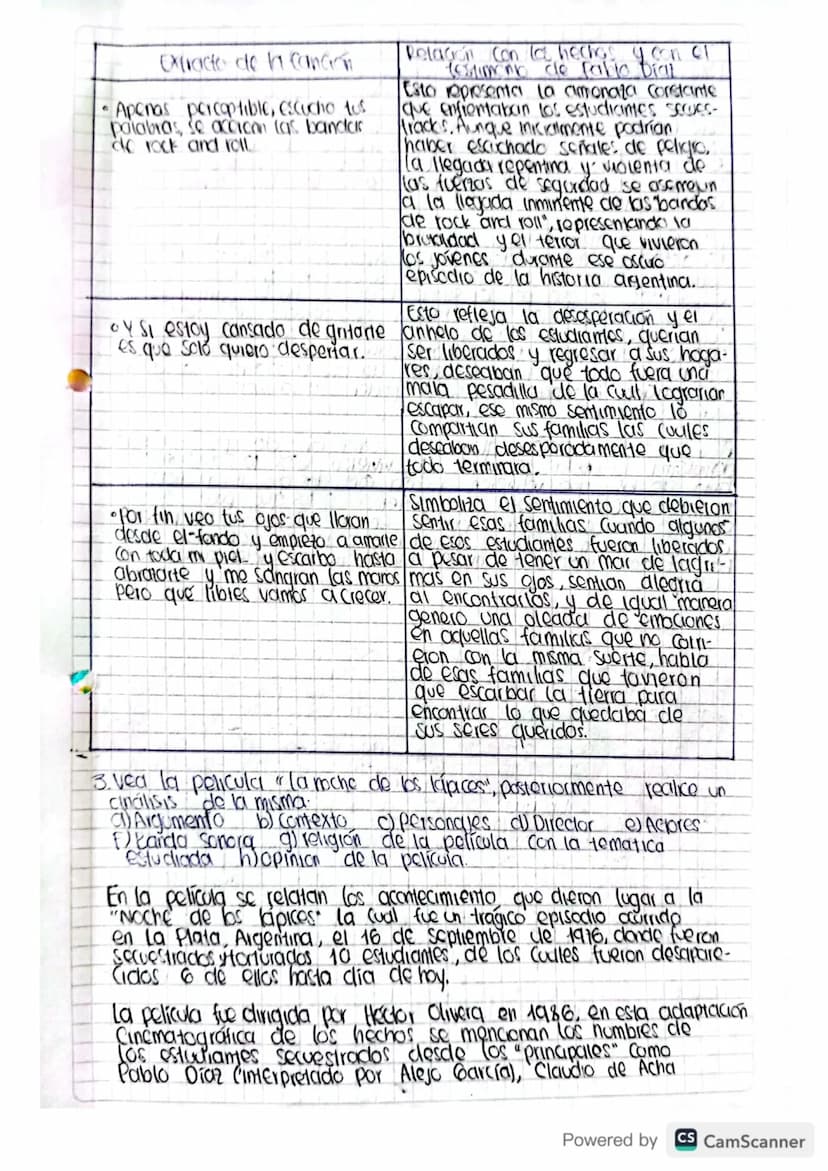 Extracto de la canción
Relación con los hechos y con el
testimonio de Pablo Díaz
• Apenas perceptible, escucho tus
palabras, se acercan las bandas
de rock and roll
Esto representa la amenaza constante
que enfrentaban los estudiantes secues-
trados. Aunque inicialmente podrían
haber escuchado señales de peligro,
la llegada repentina y violenta de
las fuerzas de seguridad se asemejan
a la llegada inminente de las bandas
de rock and roll", representando la
brutalidad y el terror que vivieron
los jóvenes durante ese oscuro
episodio de la historia argentina.
• Y si estoy cansado de gritarte
es que solo quiero despertar.
Esto refleja la desesperación y el
anhelo de los estudiantes, querían
ser liberados y regresar a sus hoga-
res, deseaban que todo fuera una
mala pesadilla de la cual lograrían
escapar, ese mismo sentimiento lo
compartían sus familias las cuales
deseaban desesperadamente que
todo terminara.
• Por fin veo tus ojos que lloran
desde el fondo y empiezo a amarte
con toda mi piel y escarbo hasta
abrazarte y me sangran las manos
pero que libres vamos a crecer.
Simboliza el sentimiento que debieron
sentir esas familias cuando algunos
de esos estudiantes fueron liberados
a pesar de tener un mar de lágri-
mas en sus ojos, sentían alegría
al encontrarlos, y de igual manera
genero una oleada de emociones
en aquellas familias que no corri-
eron con la misma suerte, habla
de esas familias que tuvieron
que escarbar la tierra para
encontrar lo que quedaba de
sus seres queridos.
3. Vea la película "la noche de los lápices", posteriormente realice un
análisis de la misma.
a) Argumento b) Contexto c) personajes d) Director e) Actores
f) banda sonora g) religión de la película con la temática
estudiada h) opinión de la película.
En la película se relatan los acontecimiento que dieron lugar a la
"Noche de los lápices" la cual fue un trágico episodio ocurrido
en La Plata, Argentina, el 16 de septiembre de 1976, donde fueron
secuestrados y torturados 10 estudiantes, de los cuales fueron desapare-
cidos 6 de ellos hasta día de hoy.
La película fue dirigida por Héctor Olivera en 1986, en esta adaptación
cinematográfica de los hechos se mencionan los nombres de
los estudiantes secuestrados desde los "principales" como
Pablo Díaz (interpretado por Alejo García), Claudio de Acha
Powered by CS CamScanner